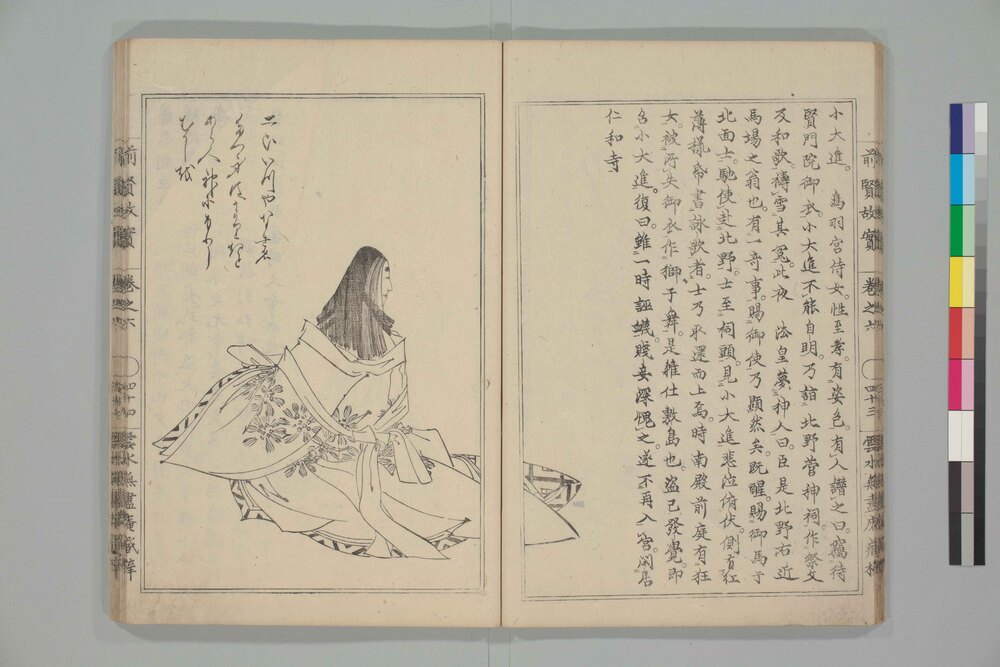 小大進。鳥羽宮侍女。性至孝。有姿色。有人譖之曰。竊待
賢門院御衣。小大進不能自明。乃詣北野菅神祠。作祭文
及和歌。禱雪其冤。此夜 法皇夢神人曰。臣是北野右近
馬場之翁也。有一奇事。賜御使乃顯然矣。既醒。賜御馬于
北面士。馳使赴北野。士至祠頭。見小大進悲泣俯伏。側有紅
薄樣帝書詠歌者。士乃取還而上焉。時南殿前庭有狂
女。被所失御衣。作獅子舞。是雜仕敷島也。盜已發覺。即
召小大進。復曰。雖一時誣蠛。賤妾深愧之。遂不再入宮。閑居
仁和寺
前賢故實
卷之六
四十三
おもひいつや
なき名
たつ身は
うかりきと
あら人神に
なりし
むかしを
前賢故實
卷之六